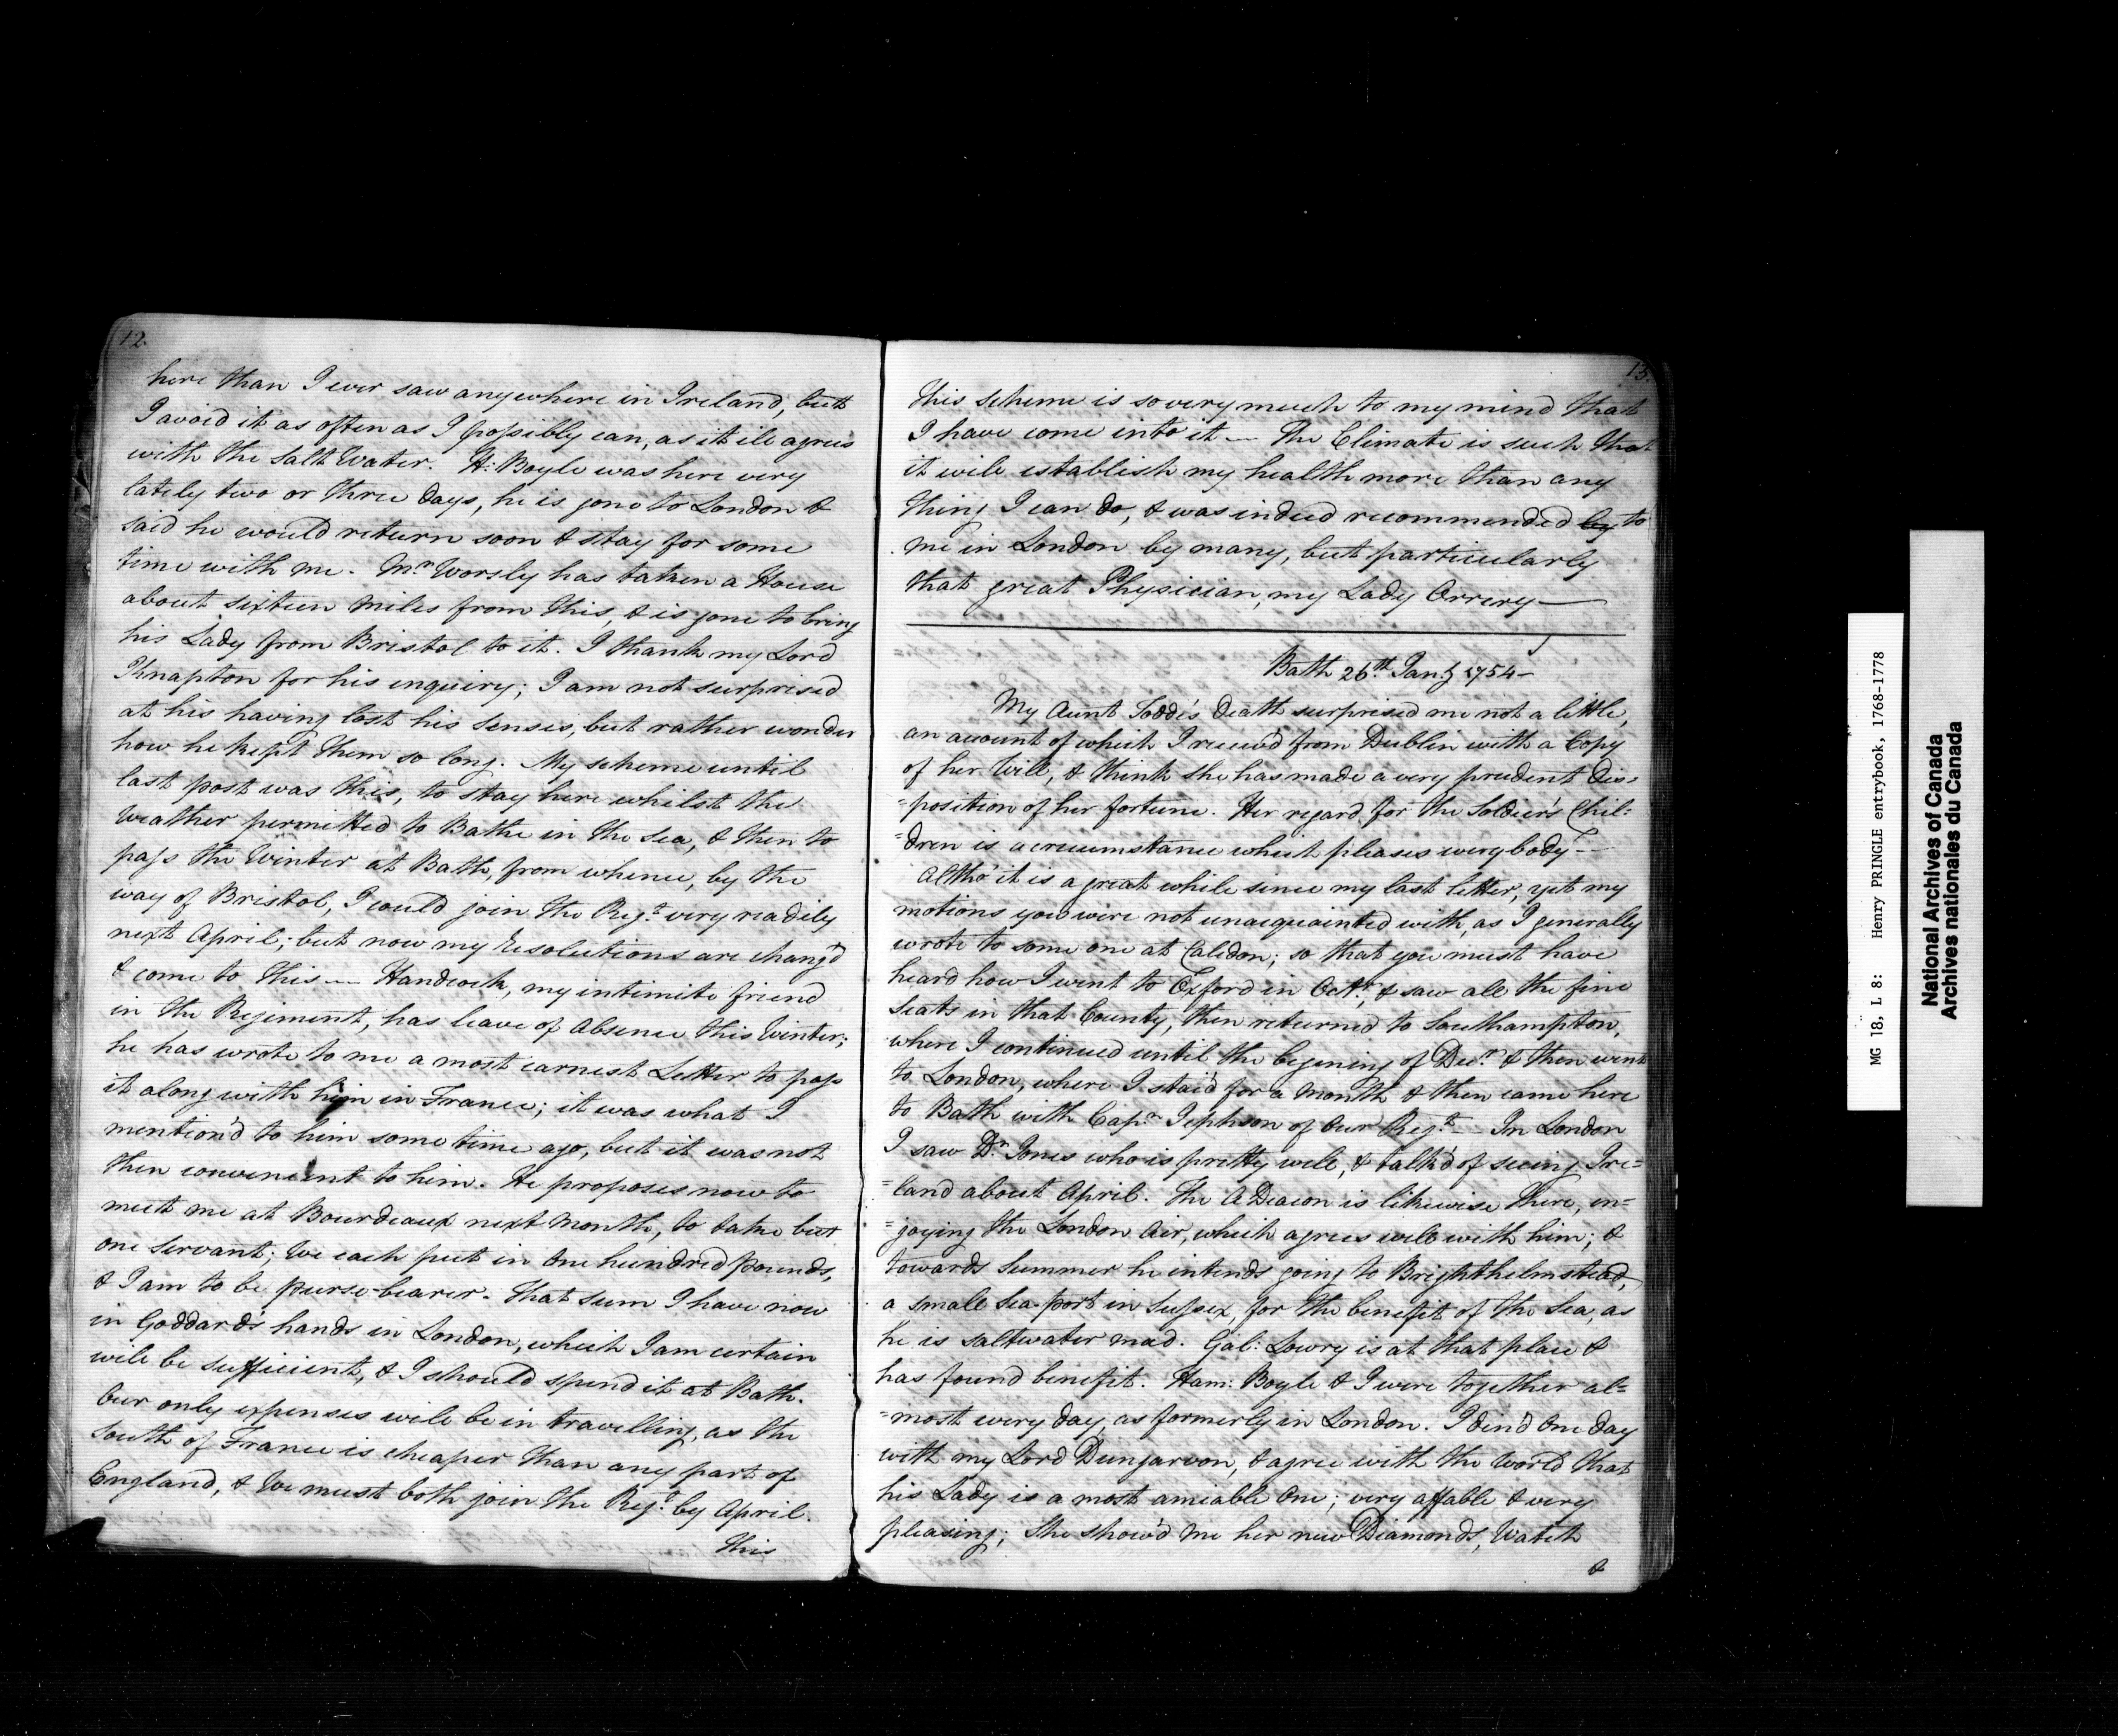 12.
here than I ever saw anywhere in Ireland, but
I avoid it as often as I possibly can, as it ill agrees
with the Salt Water. H: Boyle was here very
lately two or three days, he is gone to London &
said he would return soon & stay for some
time with me. Mr. Worsly has taken a House
about sixteen Miles from this, & is gone to bring
his Lady from Bristol to it. I thank my Lord
Knapton for his enquiry; I am not surprised
at his having lost his Senses, but rather wonder
how he kept them so long. My scheme until
last post was this, to stay here whilst the
Weather permitted to Bathe in the Sea, & then to
pass the Winter at Bath, from whence, by the
way of Bristol, I could join the Regt. very readily
next April; but now my Resolutions are chang'd
& come to this — Handcock, my intimite friend
in the Regiment, has leave of Absence this Winter;
he has wrote to me a most earnest Letter to pass
it along with him in France; it was what I
mention'd to him some time ago, but it was not
then convenient to him. He proposes now to
meet me at Bourdeaux next Month, to take but
one Servant; We each put in One hundred pounds,
& I am to be purse-bearer. That sum I have now
in Goddard's hands in London, which I am certain
will be sufficient, & I should spend it at Bath.
Our only expenses will be in travelling, as the
South of France is cheaper than any part of
England, & We must both join the Regt. by April.
This
13.
This scheme is so very much to my mind that
I have come into it — The Climate is such that
it will establish my health more than any
thing I can do, & was indeed recommended by to
me in London by many, but particularly
that great Physician, my Lady Orrery —
Bath 26th. Jany. 1754 —
My Aunt Todd's Death surprised me not a little,
an account of which I receiv'd from Dublin with a Copy
of her Will, & think she has made a very prudent Dis=
=position of her fortune. Her regard for the Soldier's Chil=
=dren is a circumstance which pleases every body —
Altho' it is a great while since my last letter, yet my
motions you were not unacquainted with, as I generally
wrote to some one at Caledon; so that you must have
heard how I went to Oxford in Octr., & saw all the fine
Seats in that County, then returned to Southampton,
where I continued until the begening of Decr. & then went
to London, where I stai'd for a Month & then came here
to Bath with Capn. Jephson of Our Regt. — In London
I saw Dr. Jones who is pretty well, & talk'd of seeing Ire=
=land about April. The A Deacon is likewise there, en=
=joying the London Air, which agrees well with him; &
towards Summer he intends going to Brighthelmstead,
a small Sea-port in Sussex, for the benefit of the Sea, as
he is saltwater mad. Gal: Lowry is at that place &
has found benefit. Ham: Boyle & I were together al=
=most every day, as formerly in London. I din'd One day
with my Lord Dungarvon, & agree with the World that
his Lady is a most amiable One; very affable & very
pleasing; She show'd me her new Diamonds, Watch
&
MG 18, L 8: Henry PRINGLE entrybook, 1768-1778
National Archives of Canada
Archives nationales du Canada